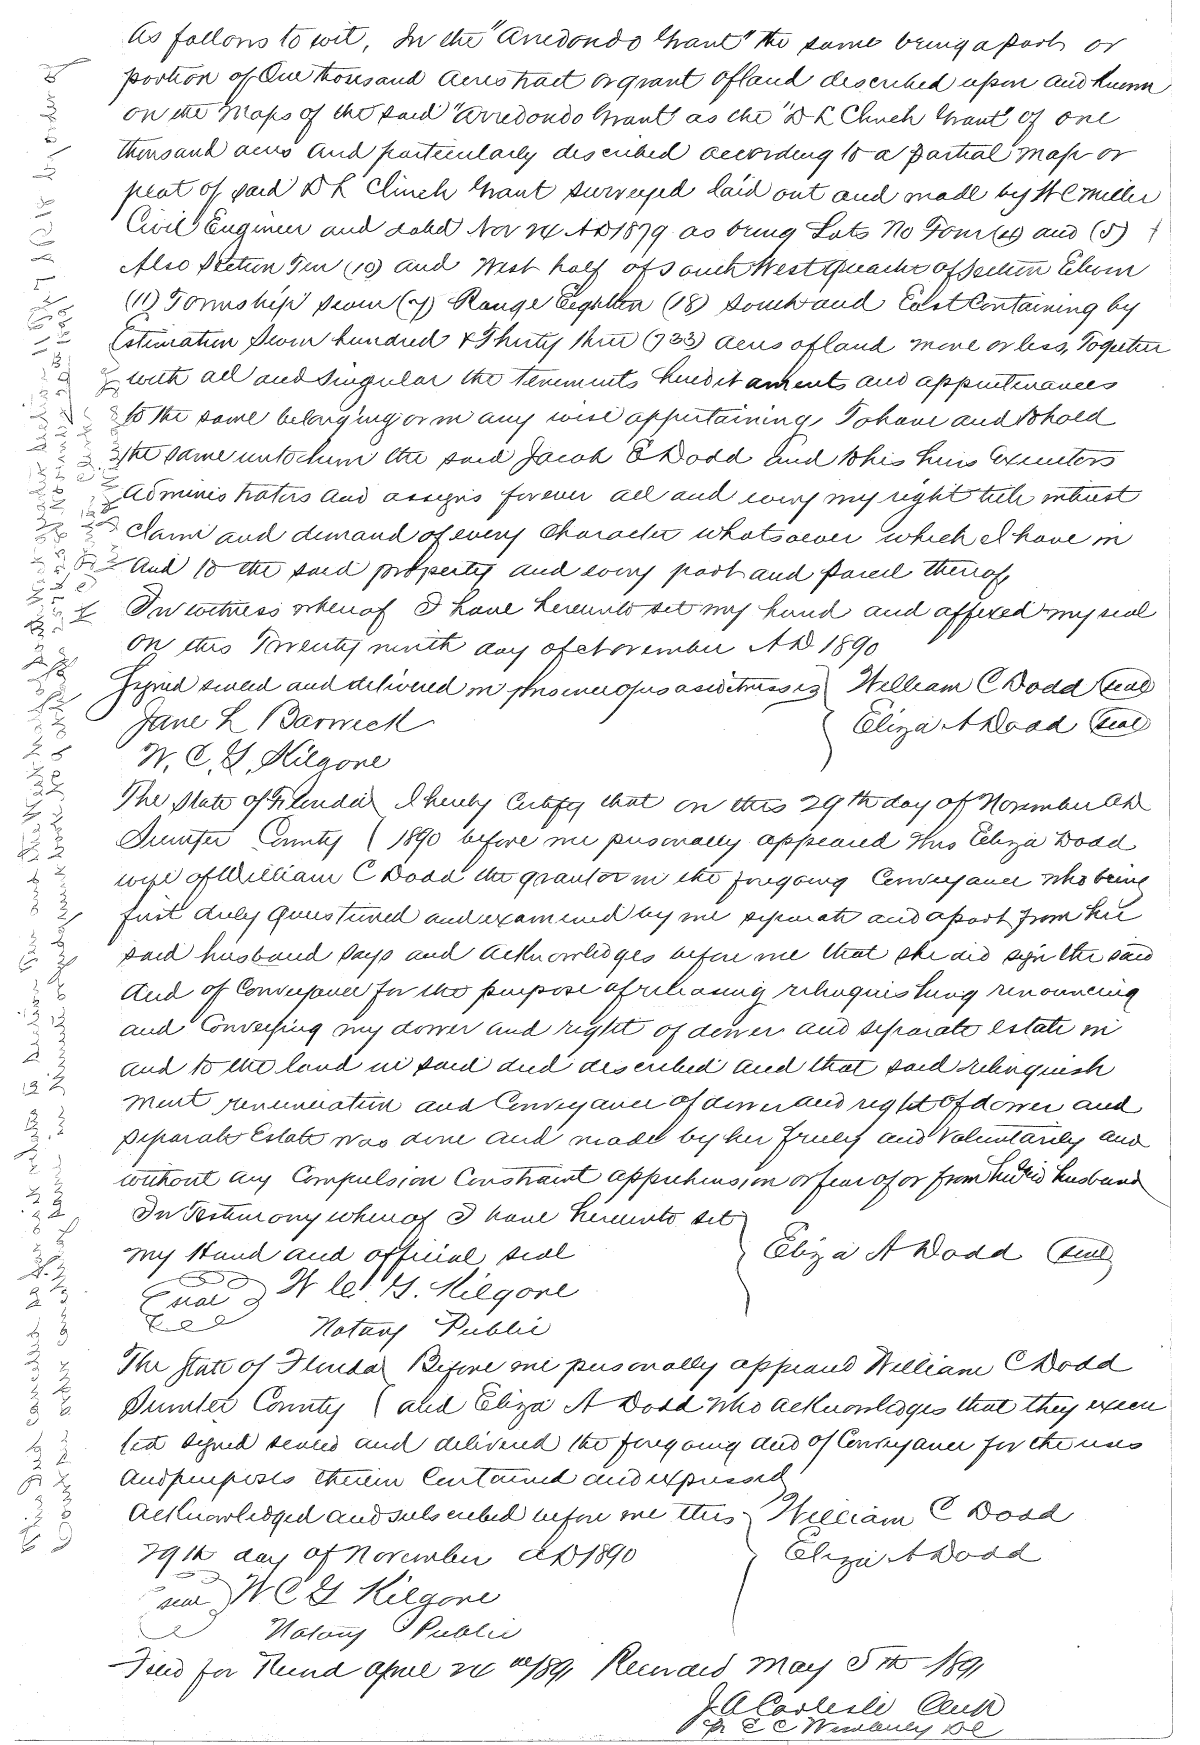 As follows to wit, In the "Arredondo Grant" the same being a part or
portion of One thousand acres tract or grant of land described upon and known
on the Maps of the said "Arredondo Grant" as the "D L Clinch Grant" of one
thousand acres and particularly described according to a partial map or
plat of said D L Clinch Grant surveyed laid out and made by H C Miller
Civil Engineer and dated Nov 24 AD 1879 as being Lots No Four (4) and (5)
Also Section Ten (10) and West half of South West Quarter of Section Eleven
(11) Township Seven (7) Range Eighteen (18) South and East Containing by
Estimation Seven hundred & Thirty three (733) acres of land more or less, Together
with all and Singular the tenements hereditaments and appurtenances
to the same belonging or in any wise appertaining, To have and to hold
the same unto him the said Jacob E Dodd and to his heirs Executors
Administrators and assigns forever all and every my right title interest
Claim and demand of every Character whatsoever which I have in
and to the said property and every part and Parcel thereof,
In witness whereof I have hereunto set my hand and affixed my seal
on this Twenty ninth day of November A D 1890
Signed sealed and delivered in presence of us as witnesses } William C Dodd (seal)
Jane L Barwick Eliza A Dodd (seal)
W. C. G. Kilgore
The State of Florida } I hereby Certify that on this 29th day of November AD
Sumter County { 1890 before me personally appeared Mrs Eliza Dodd
wife of William C Dodd the grantor in the foregoing Conveyance who being
first duly Questioned and examined by me separate and apart from her
said husband says and acknowledges before me that she did sign the said
deed of Conveyance for the purpose of releasing relinquishing renouncing
and Conveying my dower and right of dower and separate estate in
and to the land in said deed described and that said relinquish
ment renunciation and Conveyance of dower and right of dower and
separate Estate was done and made by her freely and Voluntarily and
without any Compulsion Constraint apprehension or fear of or from her said husband
In Testimony whereof I have hereunto set
my Hand and official seal } Eliza A Dodd (seal)
seal W C. G. Kilgore
Notary Public
The State of Florida } Before me personally appeared William C Dodd
Sumter County { and Eliza A Dodd who acknowledges that they execu
ted signed sealed and delivered the foregoing deed of Conveyance for the uses
and purposes therein Contained and expressed
Acknowledged and subscribed before me this } William C Dodd
29th day of November AD 1890 Eliza A Dodd
seal W C G Kilgore
Notary Public
Filed for Record April 24 1891 Recorded May 5th 1891
J A Carlisle Clerk
DC